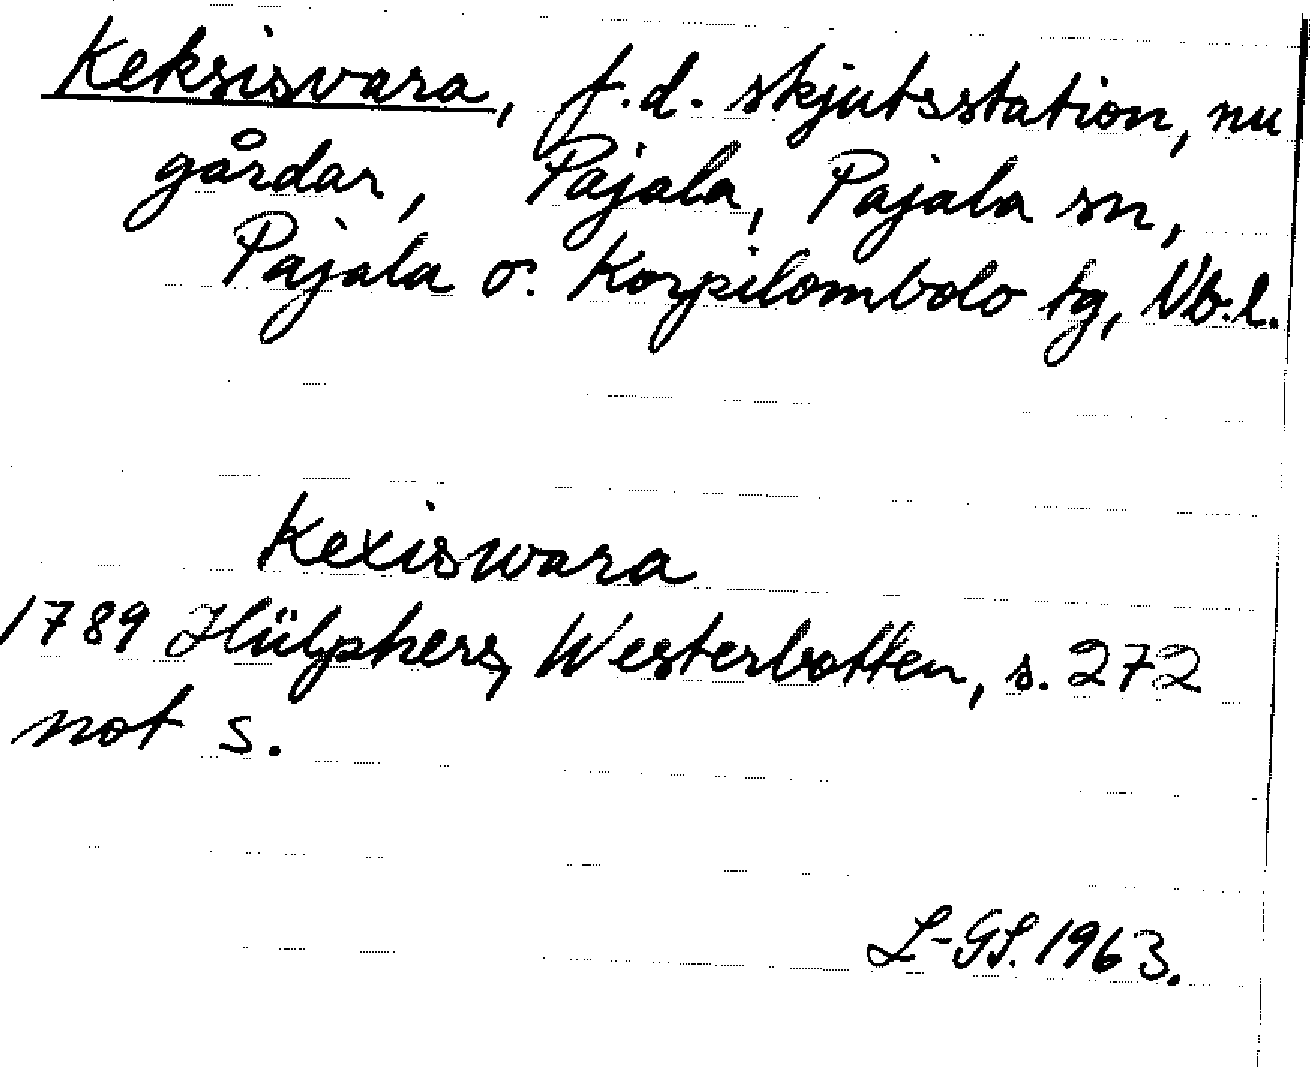 Keksisvara, f.d. skjutsstation, nu
gårdar, Pajala, Pajala sn,
Pajala o. Korpilombolo tg, Nb.l.
Kexiswara
1789 Hülphers, Westerbotten, s. 272
not s.
L-GL. 1963.